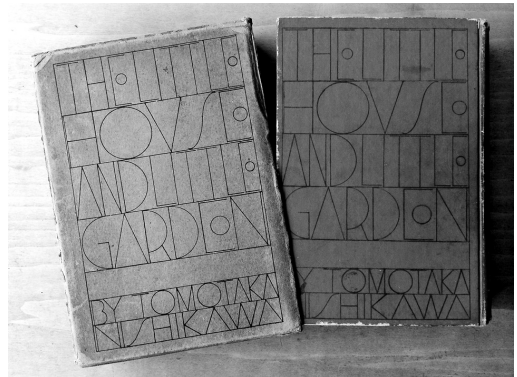 THE LITTLE
HOVSE
AND LITTLE
GARDEN
BY TOMOTAKA
NISHIKAWA
THE LITTLE
HOVSE
AND LITTLE
GARDEN
BY TOMOTAKA
NISHIKAWA